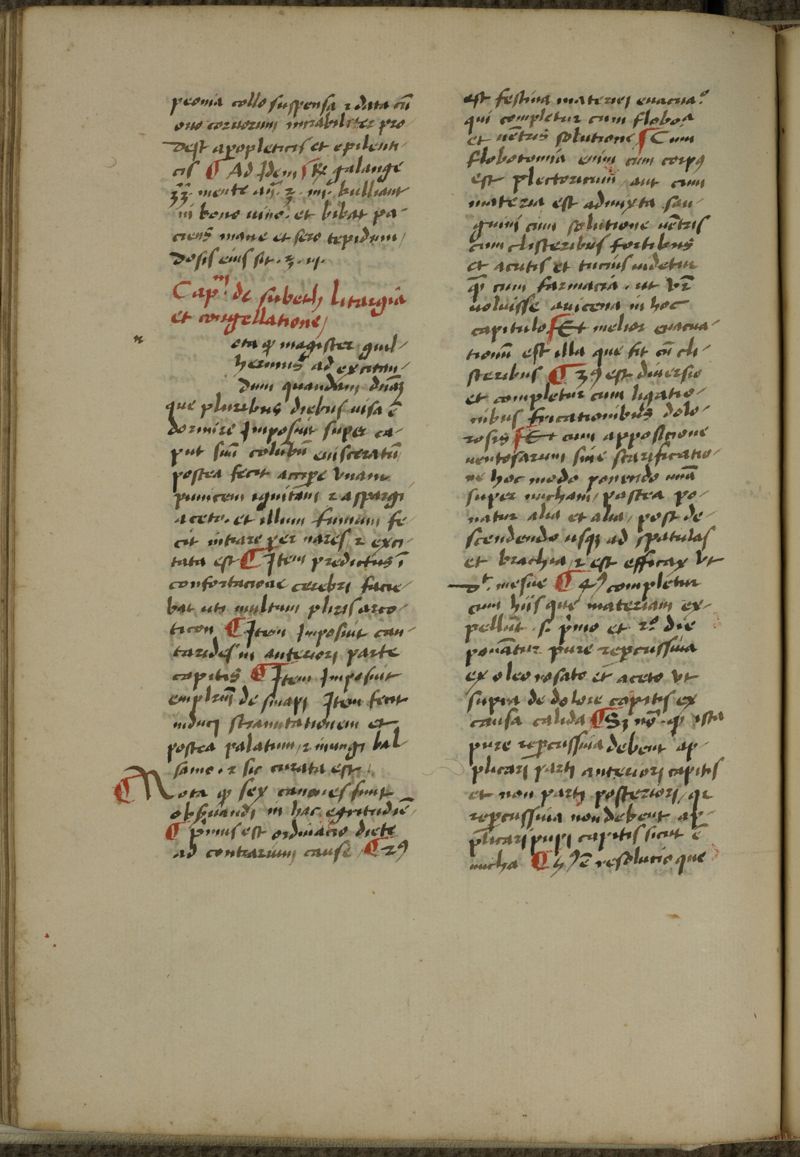 peonia collo suspensa ⁊ data cū
ouo coruorum mirabiliter pro
dest apopleticis et epilenti
cis ¶ Ad Idem ℞ galange
mente añ. ʒ. iiij. bulliant
in bono uino. et bibat pa-
ciens mane et sero tepidum /
Dosis eius sit . ʒ . vj.
Capm. de subeth litargia
et congellatione /
n
ota ꝙ magister guil-
hermus ad excitan-
dum quandam dnāȝ
que pluribus diebus uisa ē
dormire Imposuit super ca-
put suū columbū euisceratū
postea fecit accipe vnam
pumicem ignitam ⁊ aspargi
aceto. et illum fumum fe-
cit intrare per nares ⁊ exci-
tata est ¶ Item predictus ī
confortacione cerebri facie
bat uti multum plirisarco-
ticon ¶ Item Imposuit can-
tarides in anteriori parte
capitis ¶ Item Imposuit
emplrm̄ de sinapi Item fecit
induci stranutationem et
postea palatum ⁊ inungi bal
samo . ⁊ sic curata est .
¶ Nota ꝙ sex canones sunt
obseruandi in hac egritudīe
¶ primus est ordinacio diete
ad contrarium cause ¶ 2ꝰ
est festina materiei euacua°
qui completur cum floboa
et uētris solutione ¶ Cum
flobotomia enim cum corpꝰ
est plectoricum aut cum
materia est admixta san-
guini cum solutione uētris
cum clisteribus fortibus
et acutis et tucius uidetur
ꝙ cum farmacia . ut vr̄
uoluisse auicena in hoc
capitulo ¶ Et melior euacua-
tionū est illa que fit cū cli-
steribus ¶ 3ꝰ est diuersio
et completur cum ligatio-
nibus fricationibus dolo-
rosis ¶ Et cum apposicione
uentosarum sine scarificatio-
ne hoc modo ponendo unā
super nucham / postea po-
natur alia et alia / post de-
scendendo usqȝ ad spatulas
et brachia ⁊ est efficax vt
dt. mesue ¶ 4ꝰ completur
cum hiis que materiam ex-
pellūt . s. pͥmo et 2° die
ponātur pure repercussiua
ex oleo rosato et aceto vt
supra de dolore capitis ex
causa calida ¶ Sȝ nō ꝙ ista
pure repercussiua debent ap-
plicari parti anteriori capitis
et non parti posteriori / qr
repercussiua non debent ap-
plicari pupi capitis sicut ē
nucha ¶ 5ꝰ ē resolutio que